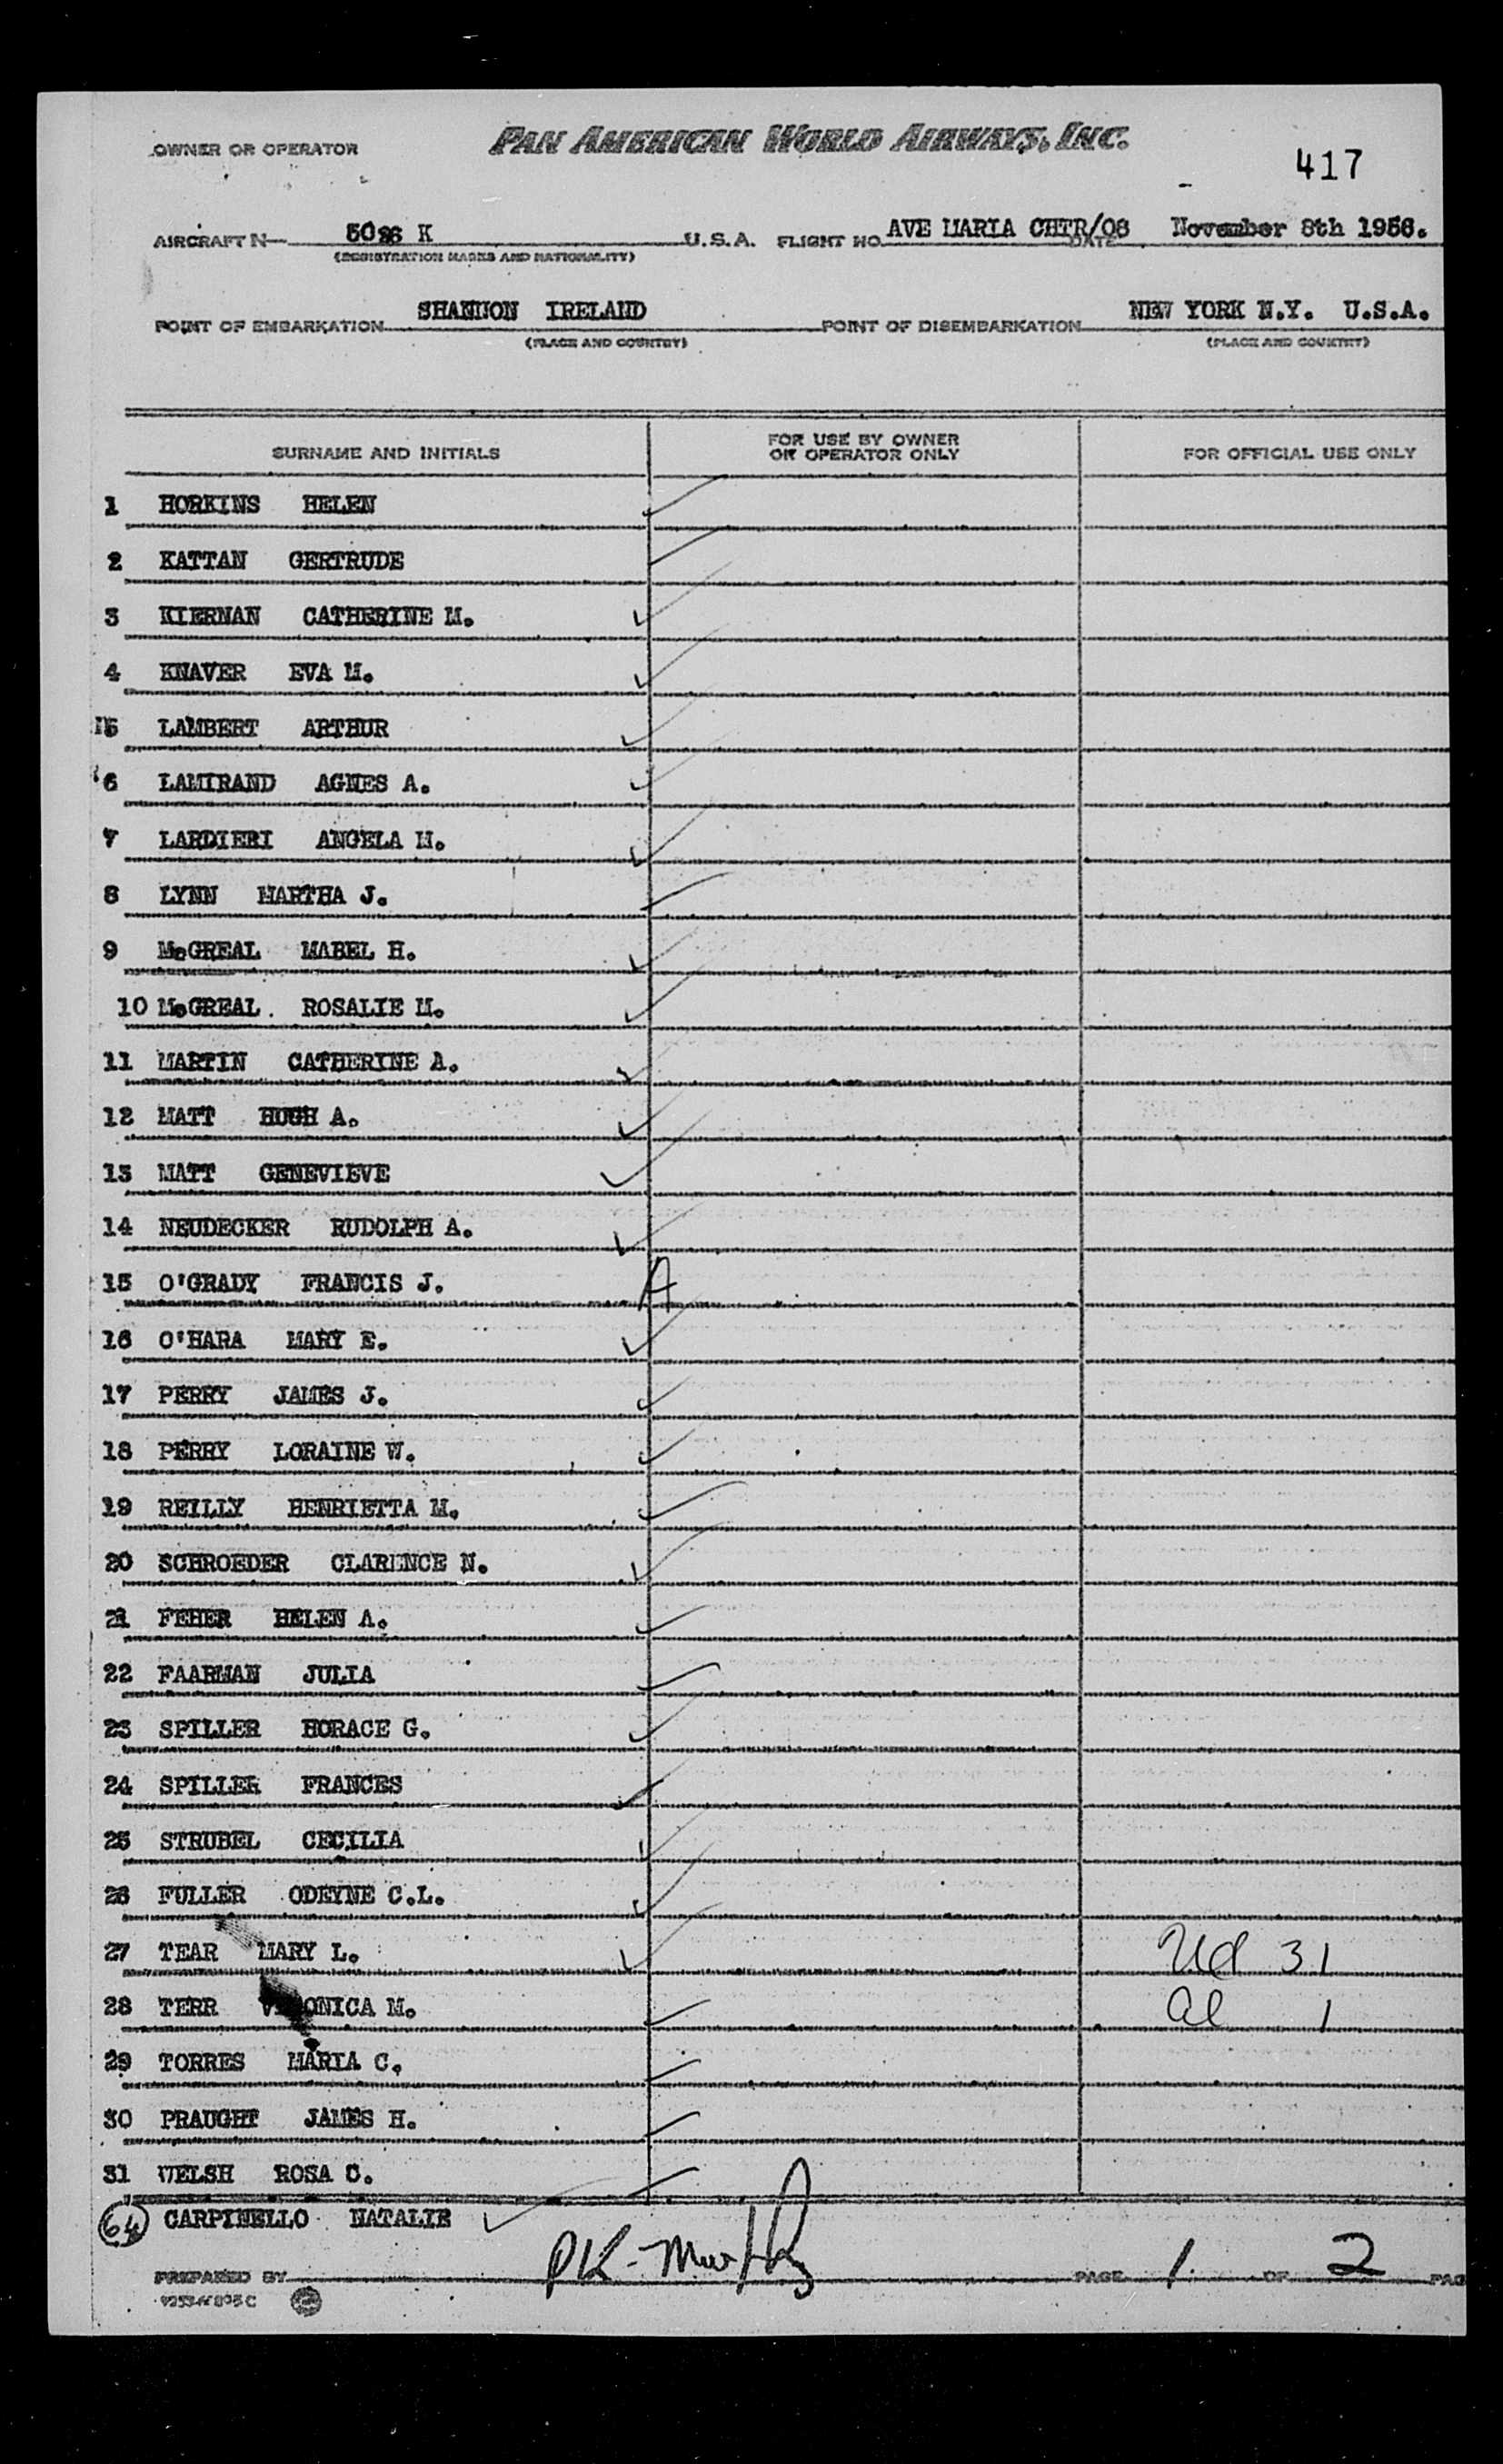 PAN AMERICAN WORLD AIRWAYS, INC.
OWNER OR OPERATOR
417
AIRCRAFT N— K U.S.A. FLIGHT NO. AVE MARIA CHTR/08 DATE November 8th 1956.
(REGISTRATION MARKS AND NATIONALITY)
POINT OF EMBARKATION SHANNON IRELAND POINT OF DISEMBARKATION NEW YORK N.Y. U.S.A.
(PLACE AND COUNTRY) (PLACE AND COUNTRY)
SURNAME AND INITIALS FOR USE BY OWNER OR OPERATOR ONLY FOR OFFICIAL USE ONLY
1 HORKINS HELEN
2 KATTAN GERTRUDE
3 KIERNAN CATHERINE M.
4 KNAVER EVA M.
5 LAMBERT ARTHUR
6 LAMIRAND AGNES A.
7 LARDIERI ANGELA M.
8 LYNN MARTHA J.
9 McGREAL MABEL H.
10 McGREAL. ROSALIE M.
11 MARTIN CATHERINE A.
12 MATT HUGH A.
13 MATT GENEVIEVE
14 NEUDECKER RUDOLPH A.
15 O'GRADY FRANCIS J. A
16 O'HARA MARY E.
17 PERRY JAMES J.
18 PERRY LORAINE W.
19 REILLY HENRIETTA M.
20 SCHROEDER CLARENCE N.
21 FEHER HELEN A.
22 FAARMAN JULIA
23 SPILLER HORACE G.
24 SPILLER FRANCES
25 STRUBEL CECILIA
26 FULLER ODEYNE C.L.
27 TEAR MARY L. 31
28 TERR VERONICA M. al 1
29 TORRES MARIA C.
30 PRAUGHT JAMES H.
31 WELSH ROSA C.
64 CARPINELLO NATALIE
PREPARED BY PK- Murphy PAGE 1 OF 2 PAG